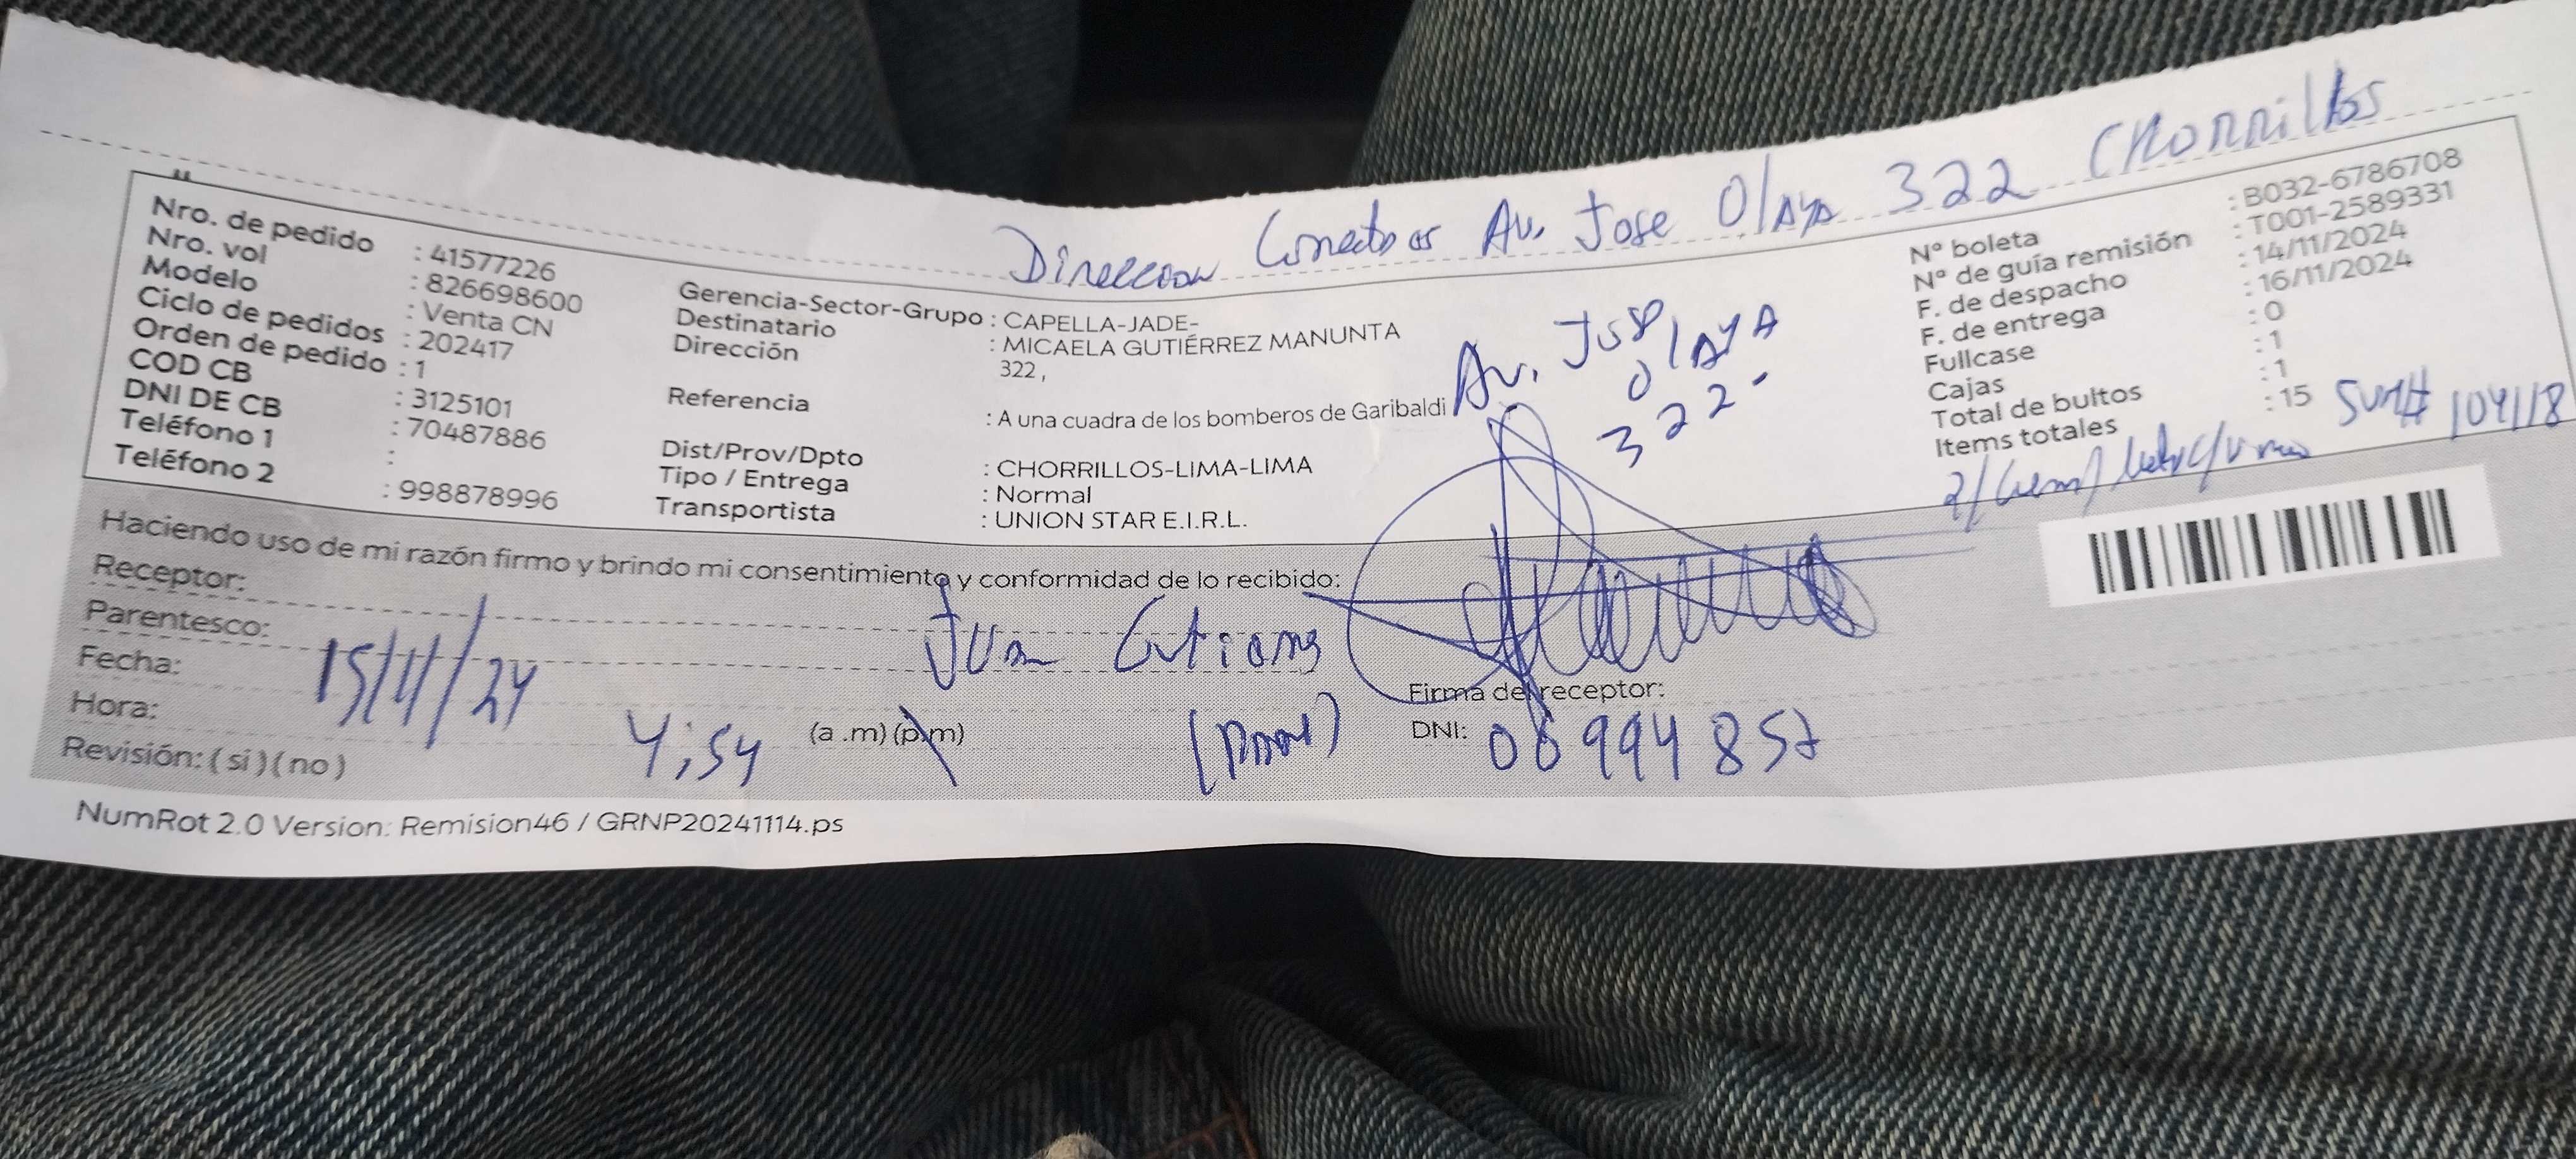 Direccion Correcta es Av. Jose Olaya 322 Chorrillos
Nro. de pedido : 41577226
Nro. vol : 826698600
Modelo : Venta CN
Ciclo de pedidos : 202417
Orden de pedido : 1
COD CB : 3125101
DNI DE CB : 70487886
Teléfono 1 :
Teléfono 2 : 998878996
Gerencia-Sector-Grupo : CAPELLA-JADE-
Destinatario : MICAELA GUTIÉRREZ MANUNTA
Dirección 322 ,
Referencia : A una cuadra de los bomberos de Garibaldi
Dist/Prov/Dpto : CHORRILLOS-LIMA-LIMA
Tipo / Entrega : Normal
Transportista : UNION STAR E.I.R.L.
Av. Jose
Olaya
322.
N° boleta : B032-6786708
N° de guía remisión : T001-2589331
F. de despacho : 14/11/2024
F. de entrega : 16/11/2024
Fullcase : 0
Cajas : 1
Total de bultos : 1
Items totales : 15
104118
Haciendo uso de mi razón firmo y brindo mi consentimiento y conformidad de lo recibido:
Receptor: Juan
Parentesco:
Fecha: 15/11/24
Hora: 4:54 (a .m) (p.m)
Revisión: ( si ) ( no )
Firma del receptor:
DNI: 06994857
NumRot 2.0 Version: Remision46 / GRNP20241114.ps